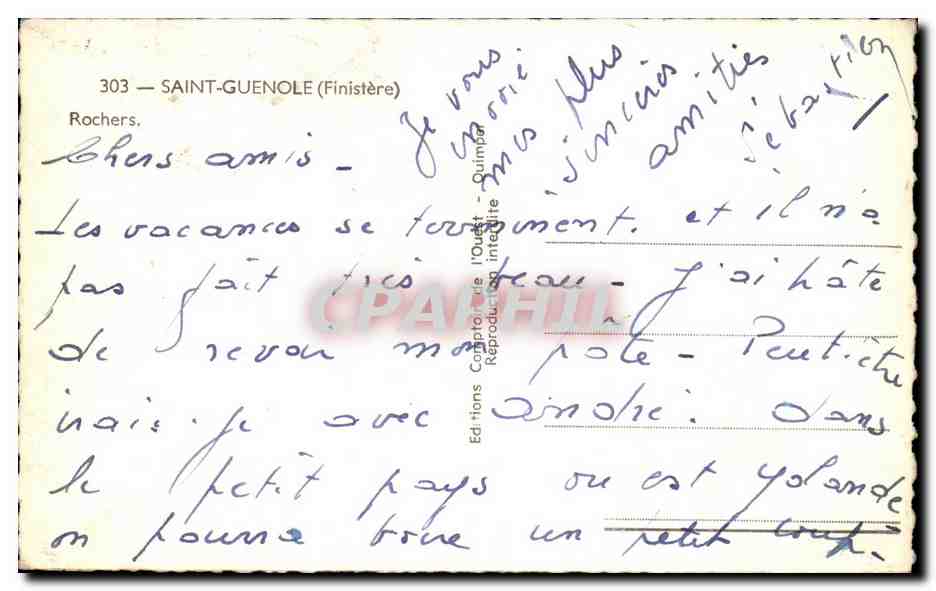 303 — SAINT-GUENOLE (Finistère)
Rochers.
Chers amis -
Les vacances se terminent. et il n'a
pas fait très beau - J'ai hâte
de revoir mon pote - Peut-être
irais-je avec André. dans
le petit pays ou est Yolande
on pourra boire un petit coup.
Je vous
envoie
mes plus
sincères
amitiés
Sébastien
Editions Comptoir de l'Ouest - Quimper
Reproduction interdite
CPARPHIL